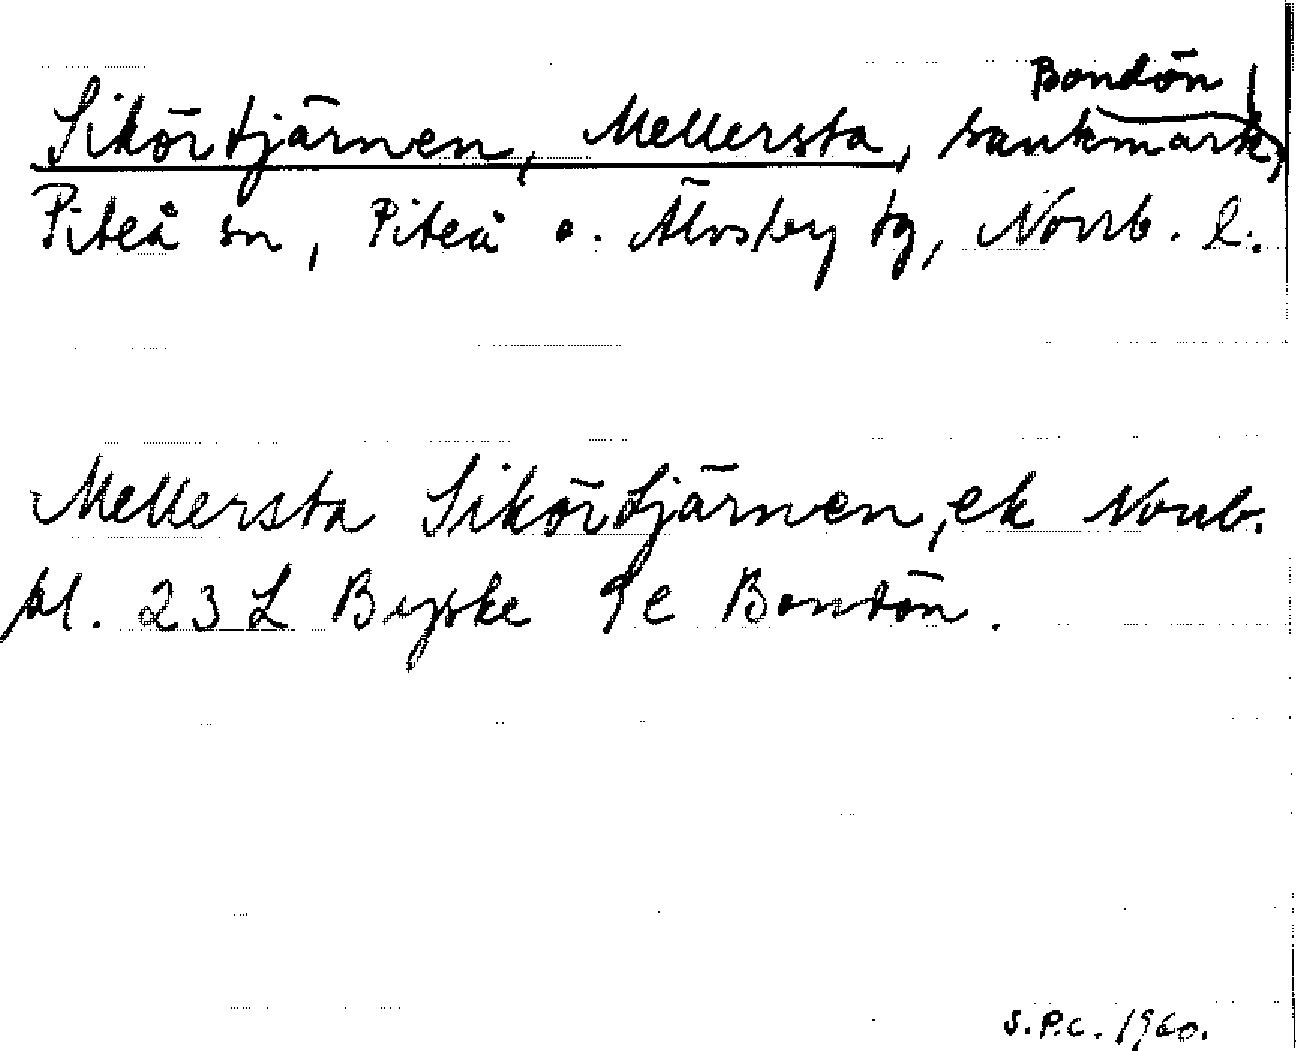 Bondön
Sikörtjärnen, Mellersta, sankmark,
Piteå sn, Piteå o. Älvsby tg, Norrb. l.
Mellersta Sikörtjärnen, ek Norrb.
bl. 23 L Byske 9e Bondön.
S.P.C. 1960.